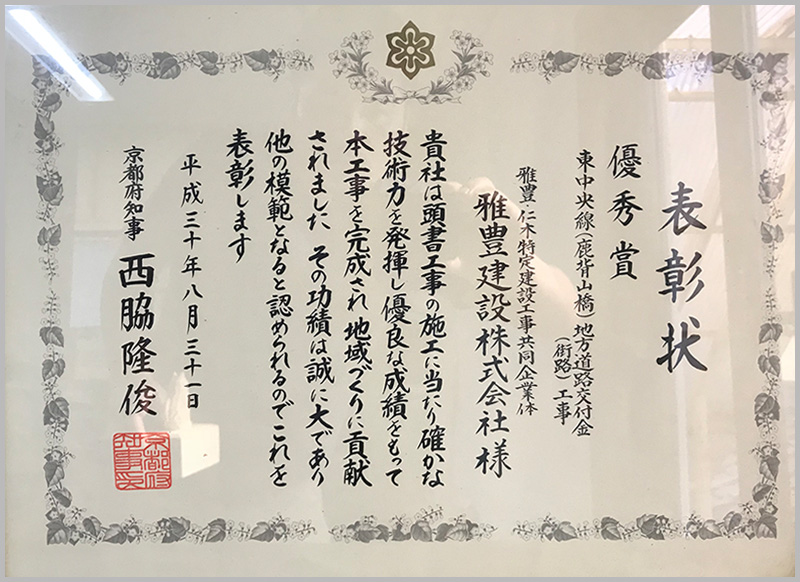 表彰状
優秀賞
東中央線(鹿背山橋)地方道路交付金
(街路)工事
雅豊・仁木特定建設工事共同企業体
雅豊建設株式会社様
貴社は頭書工事の施工に当たり確かな
技術力を発揮し優良な成績をもって
本工事を完成され地域づくりに貢献
されました その功績は誠に大であり
他の模範となると認められるのでこれを
表彰します
平成三十年八月三十一日
京都府知事 西脇隆俊
京都府知事之印